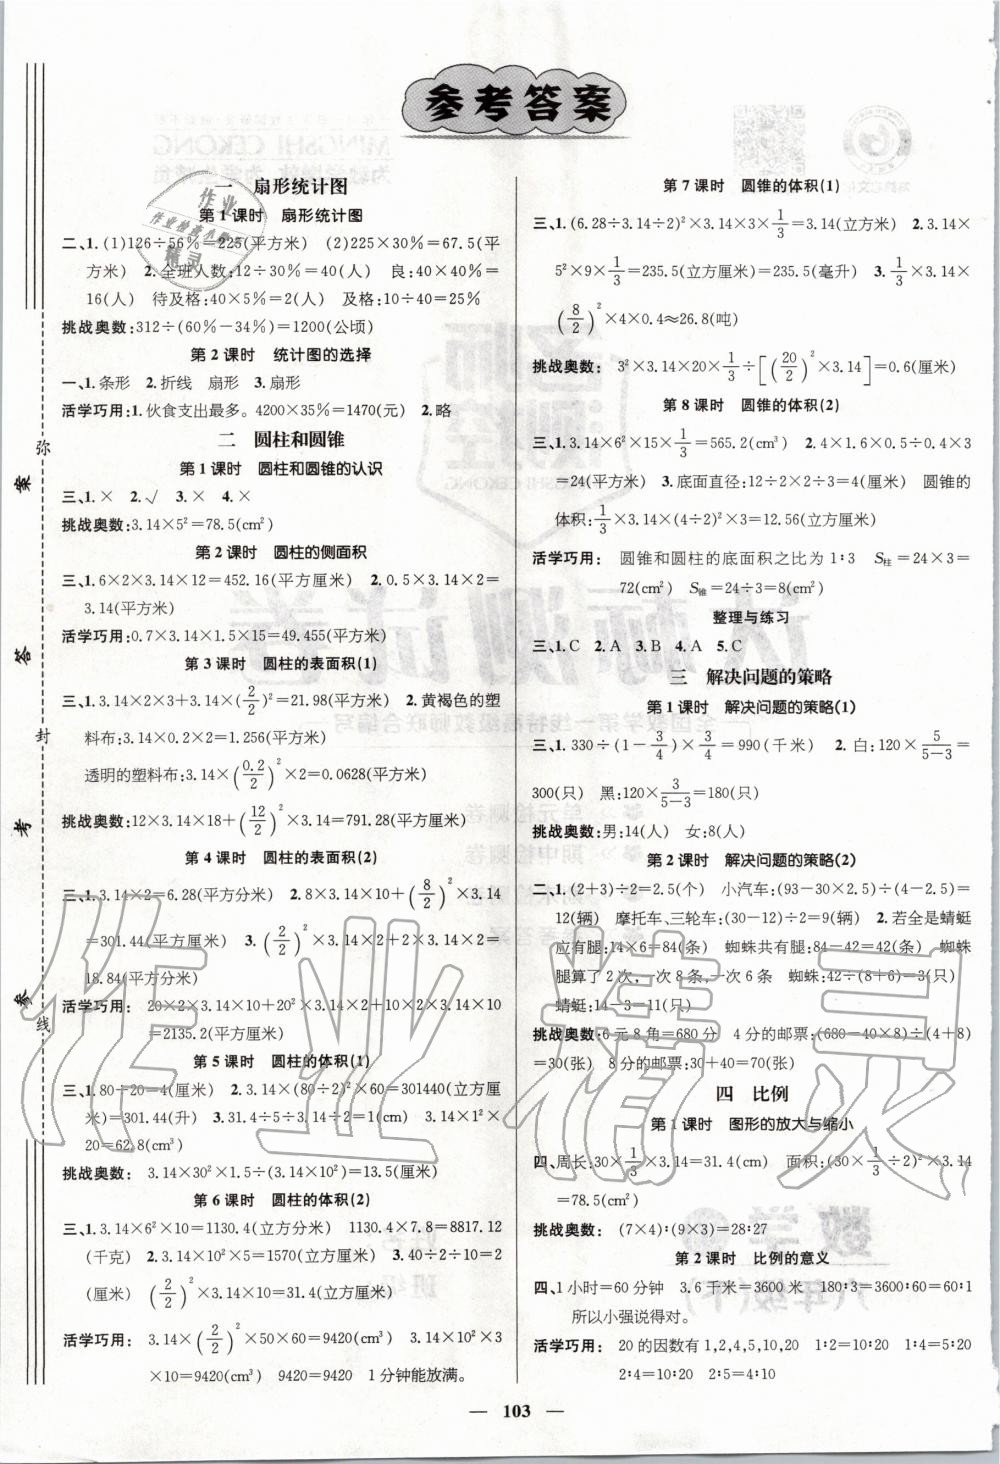 参考答案
一 扇形统计图
第1课时 扇形统计图
二、1.(1)126÷56%=225(平方米) (2)225×30%=67.5(平
方米) 2.全班人数:12÷30%=40(人) 良:40×40%=
16(人) 待及格:40×5%=2(人) 及格:10÷40=25%
挑战奥数:312÷(60%-34%)=1200(公顷)
第2课时 统计图的选择
一、1.条形 2.折线 扇形 3.扇形
活学巧用:1.伙食支出最多。4200×35%=1470(元) 2.略
二 圆柱和圆锥
第1课时 圆柱和圆锥的认识
三、1.× 2.√ 3.× 4.×
挑战奥数:3.14×5²=78.5(cm²)
第2课时 圆柱的侧面积
三、1.6×2×3.14×12=452.16(平方厘米) 2.0.5×3.14×2=
3.14(平方米)
活学巧用:0.7×3.14×1.5×15=49.455(平方米)
第3课时 圆柱的表面积(1)
三、1.3.14×2×3+3.14×(2/2)²=21.98(平方米) 2.黄褐色的塑
料布:3.14×0.2×2=1.256(平方米)
透明的塑料布:3.14×(0.2/2)²×2=0.0628(平方米)
挑战奥数:12×3.14×18+(12/2)²×3.14=791.28(平方厘米)
第4课时 圆柱的表面积(2)
三、1.3.14×2=6.28(平方分米) 2.8×3.14×10+(8/2)²×3.14
=301.44(平方厘米) 3.(2/2)²×3.14×2+2×3.14×2=
18.84(平方分米)
活学巧用: 20×2×3.14×10+20²×3.14×2+10×2×3.14×10
=2135.2(平方厘米)
第5课时 圆柱的体积(1)
三、1.80÷20=4(厘米) 2.3.14×(80÷2)²×60=301440(立方厘
米)=301.44(升) 3.31.4÷5÷3.14÷2=1(cm) 3.14×1²×
20=62.8(cm³)
挑战奥数: 3.14×30²×1.5÷(3.14×10²)=13.5(厘米)
第6课时 圆柱的体积(2)
三、1.3.14×6²×10=1130.4(立方分米) 1130.4×7.8=8817.12
(千克) 2.3.14×10²×5=1570(立方厘米) 3.40÷2÷10=2
(厘米) (2/2)²×3.14×10=31.4(立方厘米)
活学巧用: 3.14×(2/2)²×50×60=9420(cm³) 3.14×10²×3
×10=9420(cm³) 9420=9420 1分钟能放满。
第7课时 圆锥的体积(1)
三、1.(6.28÷3.14÷2)²×3.14×3×1/3=3.14(立方米) 2.3.14×
5²×9×1/3=235.5(立方厘米)=235.5(毫升) 3.1/3×3.14×
(8/2)²×4×0.4≈26.8(吨)
挑战奥数: 3²×3.14×20×1/3÷[(20/2)²×3.14]=0.6(厘米)
第8课时 圆锥的体积(2)
三、1.3.14×6²×15×1/3=565.2(cm³) 2.4×1.6×0.5÷0.4×3
=24(平方米) 3.底面直径:12÷2×2÷3=4(厘米) 圆锥的
体积:1/3×3.14×(4÷2)²×3=12.56(立方厘米)
活学巧用: 圆锥和圆柱的底面积之比为1:3 S柱=24×3=
72(cm²) S锥=24÷3=8(cm²)
整理与练习
三、1.C 2.A 3.B 4.A 5.C
三 解决问题的策略
第1课时 解决问题的策略(1)
三、1.330÷(1-3/4)×3/4=990(千米) 2.白:120×5/(5-3)=
300(只) 黑:120×3/(5-3)=180(只)
挑战奥数:男:14(人) 女:8(人)
第2课时 解决问题的策略(2)
二、1.(2+3)÷2=2.5(个) 小汽车:(93-30×2.5)÷(4-2.5)=
12(辆) 摩托车、三轮车:(30-12)÷2=9(辆) 2.若全是蜻蜓
应有腿:14×6=84(条) 蜘蛛共有腿:84-42=42(条) 蜘蛛
腿算了2次,一次8条,一次6条 蜘蛛:42÷(8+6)=3(只)
蜻蜓:14-3=11(只)
挑战奥数:6元8角=680分 4分的邮票:(680-40×8)÷(4+8)
=30(张) 8分的邮票:30+40=70(张)
四 比例
第1课时 图形的放大与缩小
四、周长:30×1/3×3.14=31.4(cm) 面积:(30×1/3÷2)²×3.14
=78.5(cm²)
挑战奥数: (7×4):(9×3)=28:27
第2课时 比例的意义
四、1小时=60分钟 3.6千米=3600米 180:3=3600:60=60:1
所以小强说得对。
活学巧用: 20的因数有1,2,4,5,10,20 1:2=10:20 1:5=4:20
2:4=10:20 2:5=4:10
— 103 —
弥
封
线
参
考
答
案
作业精灵
作业检查小